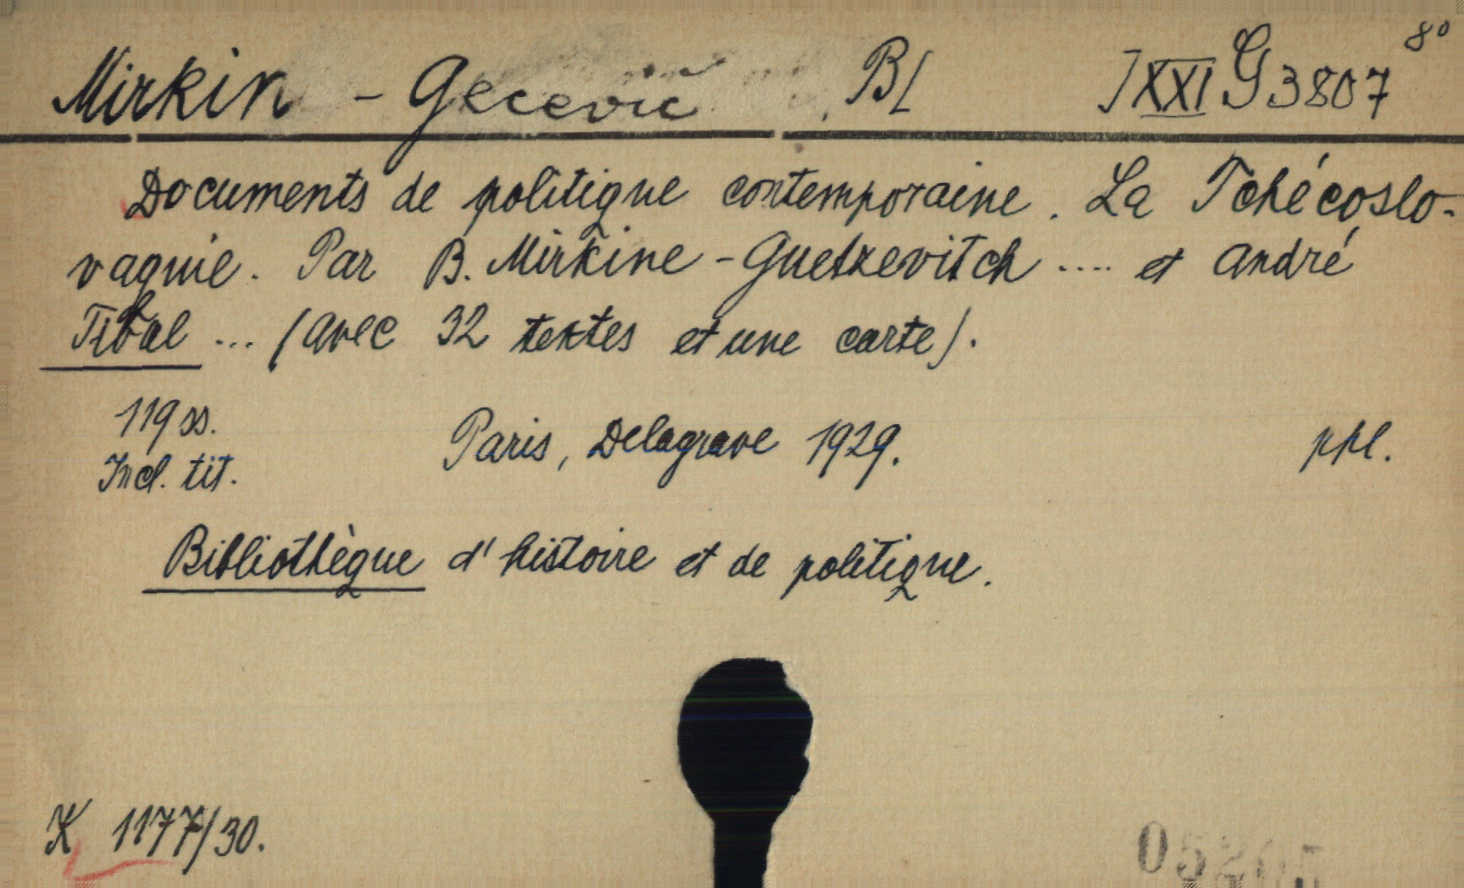 Mirkin - Gecevic , B[ I XXI G 3807 8°
Documents de politique contemporaine. La Tchécoslo-
vaquie. Par B. Mirkine - Guetzevitch .... et André
Tibal ... (avec 32 textes et une carte).
119 ss.
Incl. tit.
Paris, Delagrave 1929.
ppl.
Bibliothèque d'histoire et de politique.
K 1177/30.